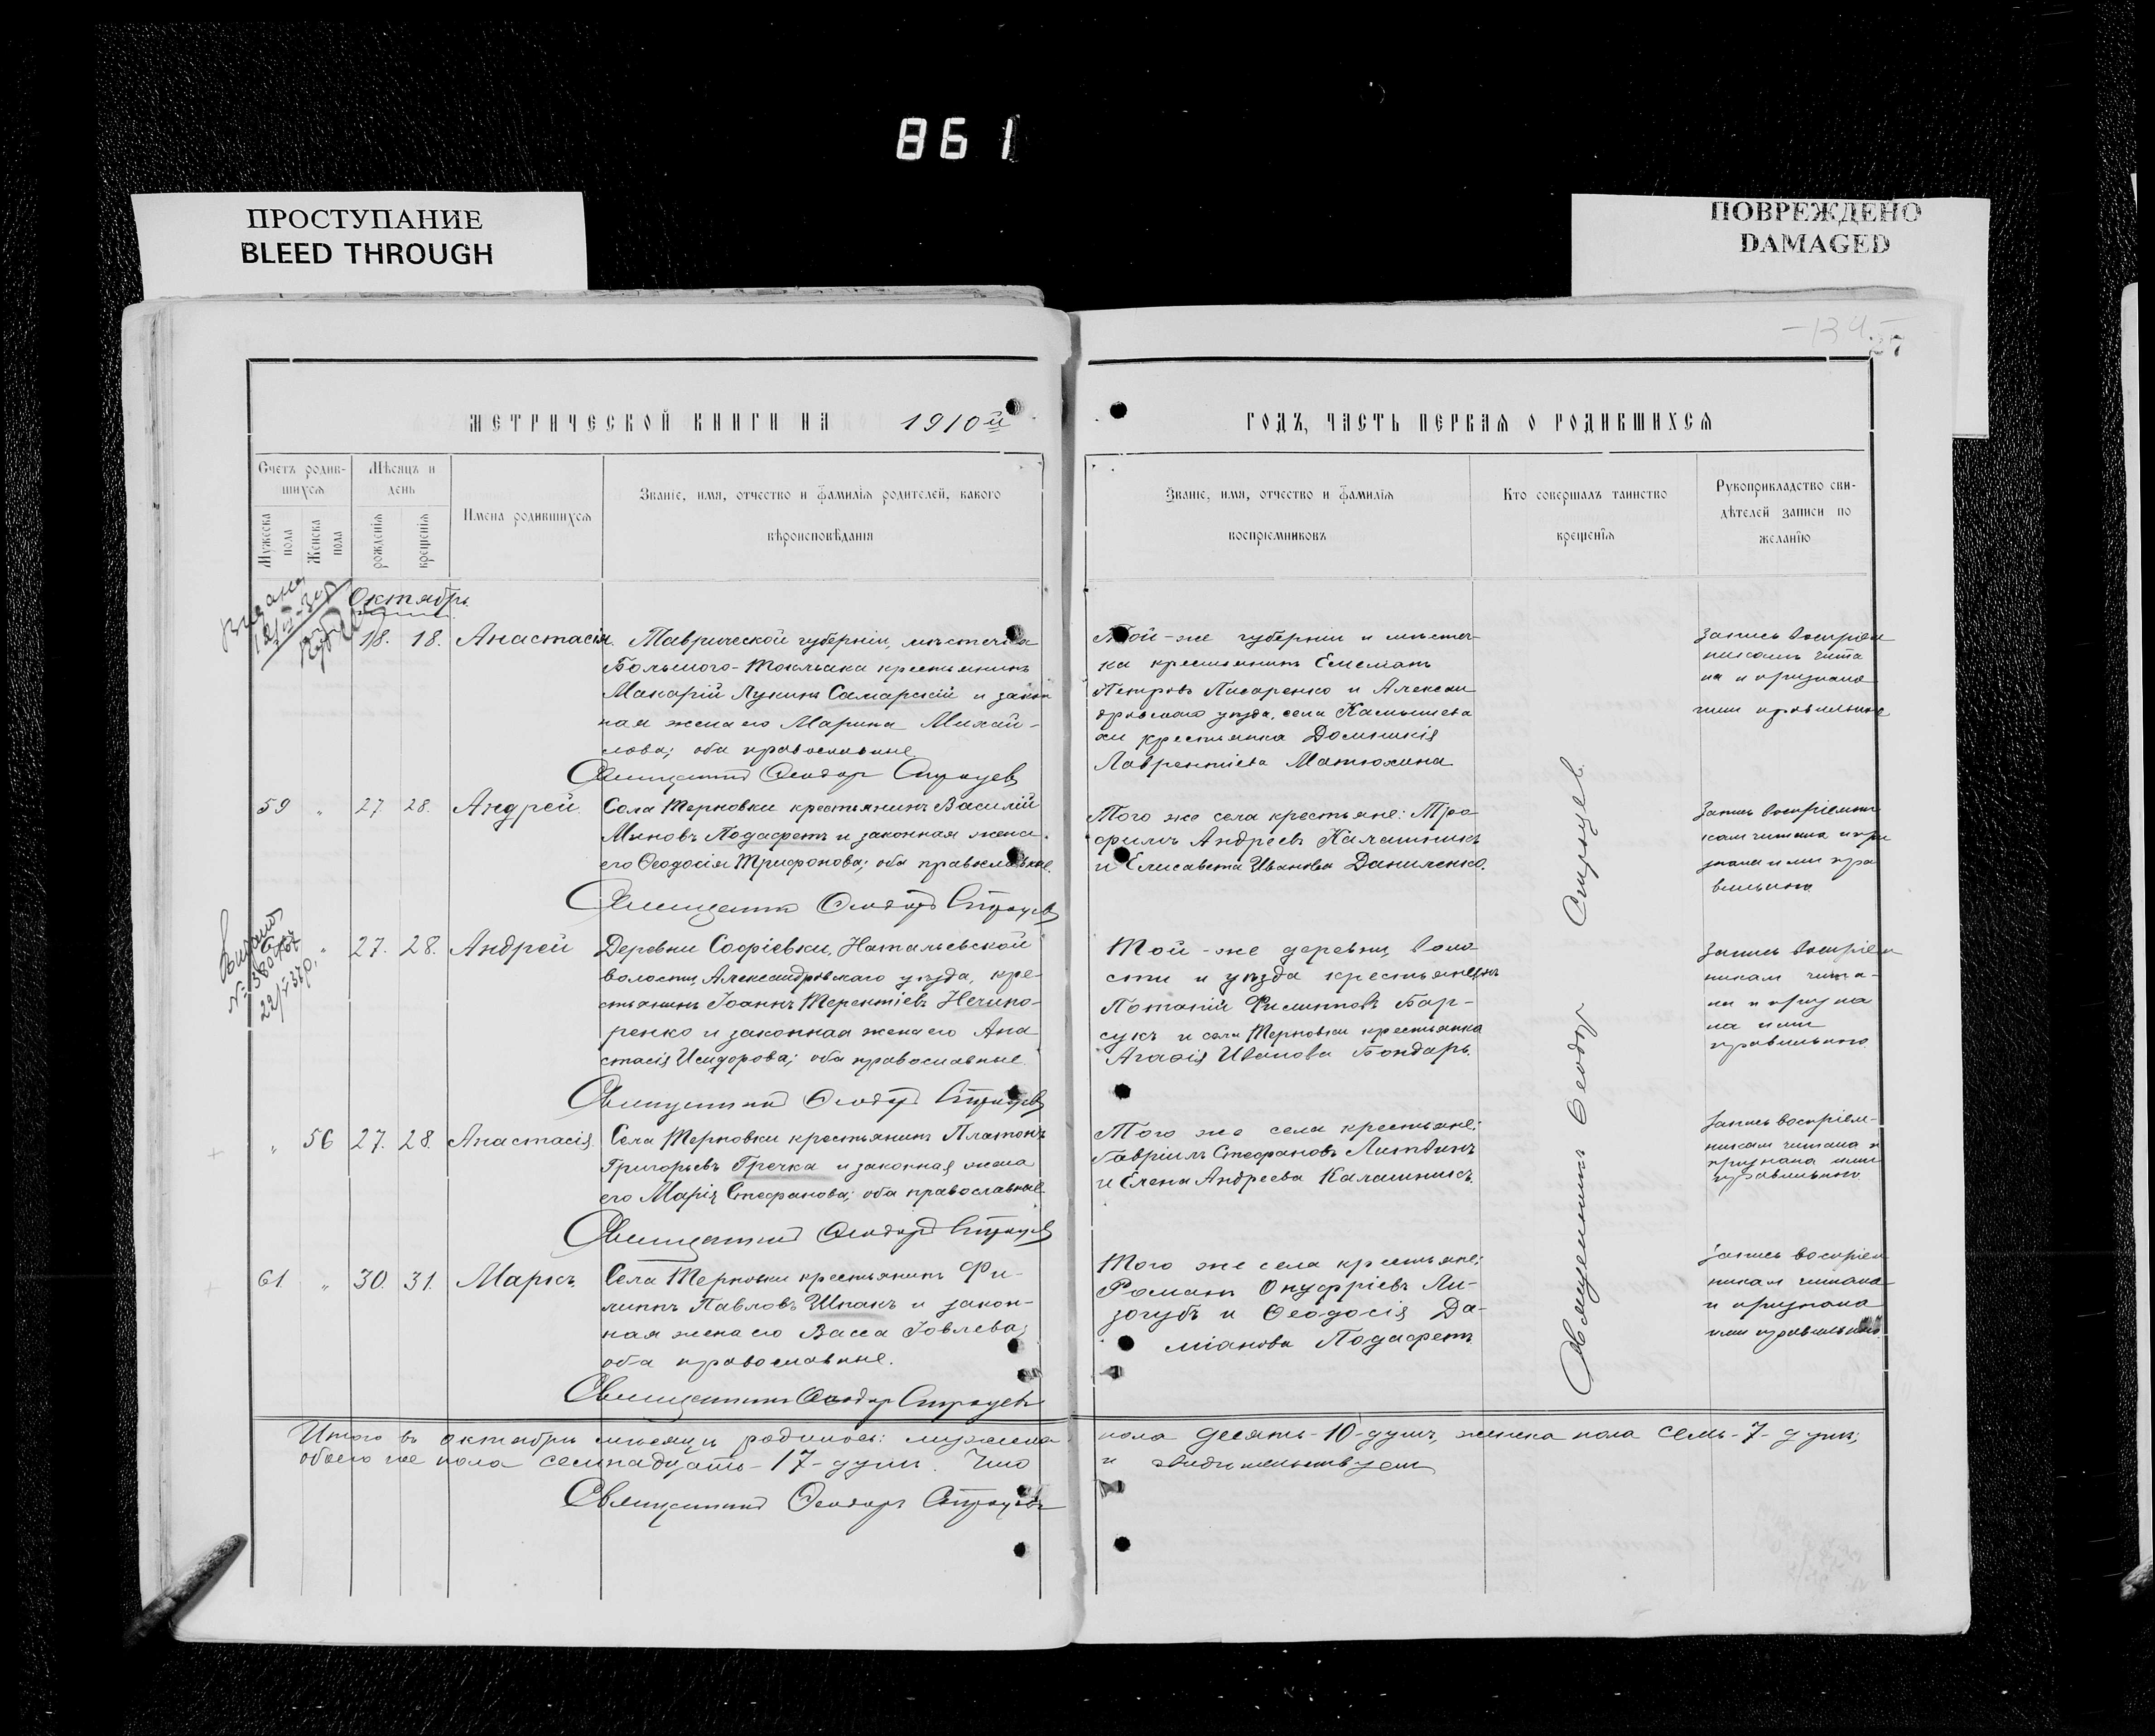 861
ПРОСТУПАНИЕ
BLEED THROUGH
ПОВРЕЖДЕНО
DAMAGED
27
МЕТРИЧЕСКОЙ КНИГИ НА 1910й
ГОДЪ, ЧАСТЬ ПЕРВАЯ О РОДИВШИХСЯ
Счетъ родив-
шихся
Мужеска пола
Женска пола
Мѣсяцъ и
день
рожденія
крещенія
Имена родившихся
Званіе, имя, отчество и фамилія родителей, какого
вѣроисповѣданія
Званіе, имя, отчество и фамилія
воспріемниковъ
Кто совершалъ таинство
крещенія
Рукоприкладство сви-
дѣтелей записи по
желанію
Октябрь
18. 18. Анастасія.
Таврической губерніи, мѣстечка
Большого-Токмака крестьянинъ
Макарій Лукинъ Самарскій и закон
ная жена его Марина Михай-
лова; оба православные
Священникъ Ѳеодоръ
Той-же губерніи и мѣстеч-
ка крестьянинъ
Петровъ Писаренко и Алексан
дровскаго уѣзда, села Камышева
хи крестьянка Домникія
Лаврентіева Матюхина
Запись воспріем
никамъ чита
на и признана
ими правильною
59 " 27 28. Андрей.
Села Терновки крестьянинъ Василій
Миновъ Подафетъ и законная жена
его Ѳеодосія Трифонова; оба православные.
Священникъ Ѳеодоръ
Того же села крестьяне: Тро
фимъ Андреевъ Калашникъ
и Елисавета Иванова Даниленко.
Запись воспріемни
камъ читана и при
знана ими пра
вильною
Выдано
22/V 37р.
" 27. 28. Андрей
Деревни Софіевки, Натальевской
волости, Александровскаго уѣзда, кре-
стьянинъ Іоаннъ Терентіевъ Нечипо-
ренко и законная жена его Ана
стасія Исидорова; оба православные.
Священникъ Ѳеодоръ
Той-же деревни, воло
сти и уѣзда крестьянинъ
Потапій Филипповъ Бар-
сукъ и села Терновки крестьянка
Агафія Иванова Бондарь.
Запись воспріем
никам чита-
на и призна
на ими
правильною
" 56 27. 28. Анастасія
Села Терновки крестьянинъ Платонъ
Григорьевъ Гречка и законная жена
его Марія Стефанова; оба православные.
Священникъ Ѳеодоръ
Того же села крестьяне:
Гавріилъ Стефановъ Литвинъ
и Елена Андреева Калашникъ.
Запись воспріем-
никам читана и
признана ими
правильною
61 " 30. 31. Маркъ
Села Терновки крестьянинъ Фи-
липпъ Павловъ Шпакъ и закон-
ная жена его Васса Іовлева;
оба православные.
Священникъ Ѳеодоръ
Того же села крестьяне:
Романъ Онуфріевъ Ли-
зогубъ и Ѳеодосія Да-
міанова Подафетъ
Запись воспріем
никам читана
и признана
ими правильною
Священникъ Ѳеодоръ
Итого въ октябрѣ мѣсяцѣ родилось: мужеска пола десять-10-душъ, женска пола семь-7-душъ;
обоего же пола семнадцать-17-душъ. Что и свидѣтельствуем
Священникъ Ѳеодоръ